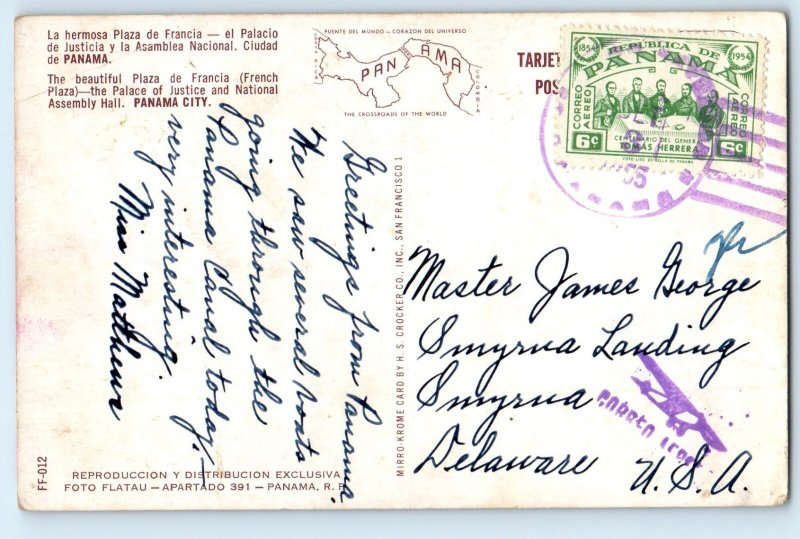 La hermosa Plaza de Francia — el Palacio
de Justicia y la Asamblea Nacional. Ciudad
de PANAMA.
The beautiful Plaza de Francia (French
Plaza)—the Palace of Justice and National
Assembly Hall. PANAMA CITY.
PUENTE DEL MUNDO – CORAZON DEL UNIVERSO
PANAMA
COLOMBIA
THE CROSSROADS OF THE WORLD
TARJET
POS
1854
1954
REPUBLICA DE
PANAMA
CORREO
AEREO
CORREO
AEREO
CENTENARIO DEL GENERAL
TOMÁS HERRERA
6c
6c
FOTO-LITO. ESTRELLA DE PANAMA
55
Greetings from Panama.
We saw several boats
going through the
Panama Canal today,
very interesting.
Miss Matthews
MIRRO-KROME CARD BY H. S. CROCKER CO., INC., SAN FRANCISCO 1
Master James George
Smyrna Landing
Smyrna
Delaware
U.S.A.
FF-012
REPRODUCCION Y DISTRIBUCION EXCLUSIVA
FOTO FLATAU — APARTADO 391 — PANAMA, R. P.